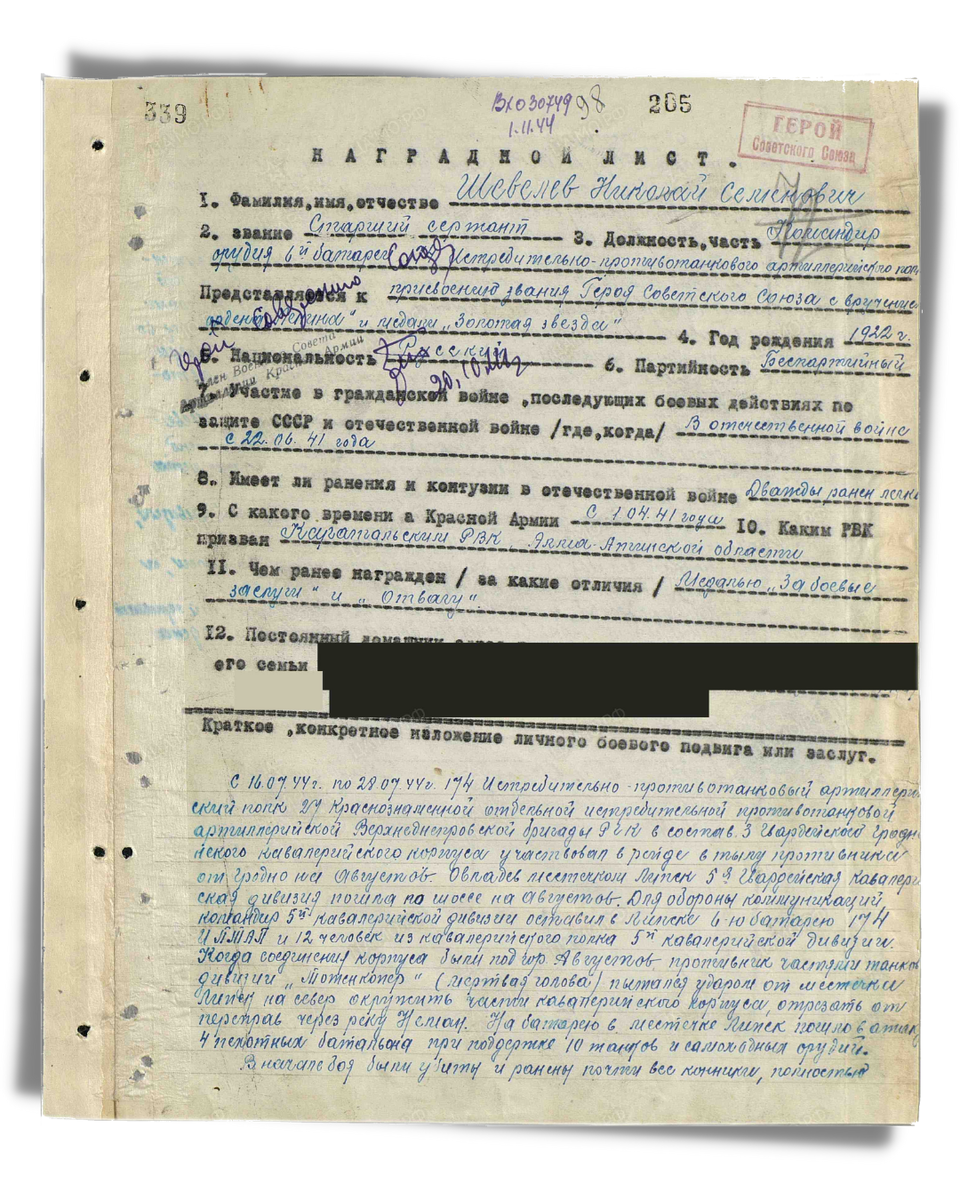 339
Вх030749 98
1.11.44
205
ГЕРОЙ
Советского Союза
НАГРАДНОЙ ЛИСТ.
I. Фамилия,имя,отчество Шевелев Николай Семенович
2. звание Старший сержант 3. Должность,часть Командир
орудия 6й батареи Истребительно-противотанкового артиллерийского
Представляется к присвоению звания Героя Советского Союза с вручением
ордена „Ленина" и медали „Золотая звезда"
4. Год рождения 1922 г.
5. Национальность Русский 6. Партийность Беспартийный
7. Участие в гражданской войне ,последующих боевых действиях по
защите СССР и отечественной войне /где,когда/ В отечественной войне
с 22.06.41 года
8. Имеет ли ранения и контузии в отечественной войне Дважды ранен легко
9. С какого времени а Красной Армии с 1.04.41 года 10. Каким РВК
призван Каратальским РВК Алма-Атинской области
II. Чем ранее награжден / за какие отличия / Медалью „За боевые
заслуги" и „Отвагу".
12. Постоянный домашний
его семьи
Краткое ,конкретное изложение личного боевого подвига или заслуг.
С 16.07.44г. по 28.07.44г. 174 Истребительно-противотанковый артиллерий
ский полк 27 Краснознаменной отдельной истребительной противотанковой
артиллерийской Верхнеднепровской бригады РГК в состав. 3 Гвардейского Гродне
нского кавалерийского корпуса участвовал в рейде в тылу противника
от Гродно на Августов. Овладев местечком Липск 5я Гвардейская кавалерий
ская дивизия пошла по шоссе на Августов. Для обороны коммуникаций
командир 5й кавалерийской дивизии оставил в Липске 6-ю батарею 174
ИПТАП и 12 человек из кавалерийского полка 5й кавалерийской дивизии.
Когда соединения корпуса были под гор. Августов. противник частями танков
дивизии „Тотенкопф" (мертвая голова) пытался ударом от местечка
Липск на север окружить части кавалерийского корпуса, отрезать от
переправ через реку Неман. На батарею в местечке Липск пошло в атаку
4 пехотных батальона при поддержке 10 танков и самоходных орудий.
В начале боя были убиты и ранены почти все конники, полностью